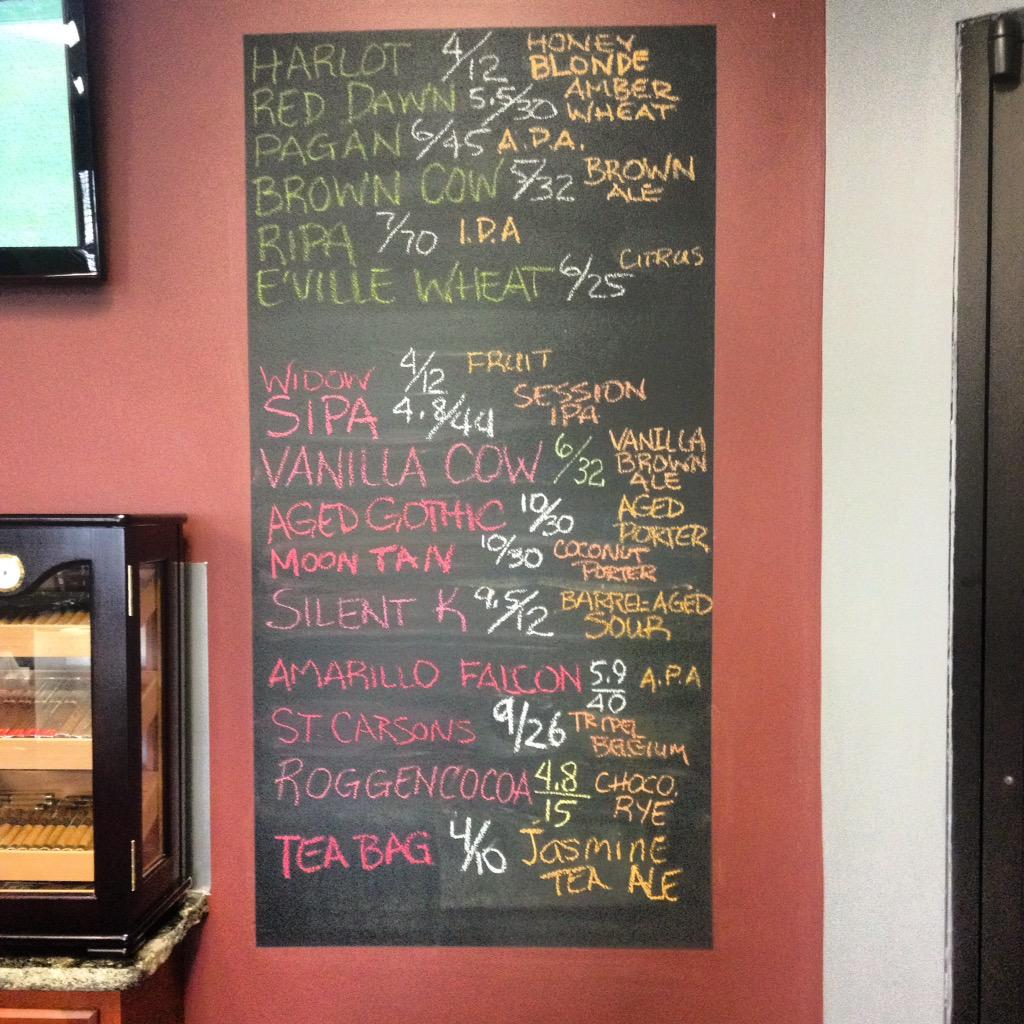 HARLOT 4/12 HONEY BLONDE
RED DAWN 5.5/30 AMBER WHEAT
PAGAN 6/45 A.P.A.
BROWN COW 5/32 BROWN ALE
RIPA 7/70 I.P.A
E'VILLE WHEAT 6/25 CITRUS
WIDOW 4/12 FRUIT
SIPA 4.8/44 SESSION IPA
VANILLA COW 6/32 VANILLA BROWN ALE
AGED GOTHIC 10/30 AGED PORTER
MOON TAN 10/30 COCONUT PORTER
SILENT K 9.5/12 BARREL-AGED SOUR
AMARILLO FALCON 5.9/40 A.P.A
ST CARSONS 9/26 TRIPEL BELGIUM
ROGGENCOCOA 4.8/15 CHOCO. RYE
TEA BAG 4/10 Jasmine TEA ALE